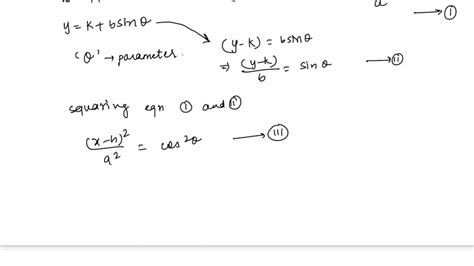 a ⟶ (i)
y = k + b sinθ
'θ' → parameter.
(y-k) = b sinθ
⇒ (y-k)/b = sinθ ⟶ (ii)
squaring eqn (i) and (ii)
(x-h)²/a² = cos²θ ⟶ (iii)